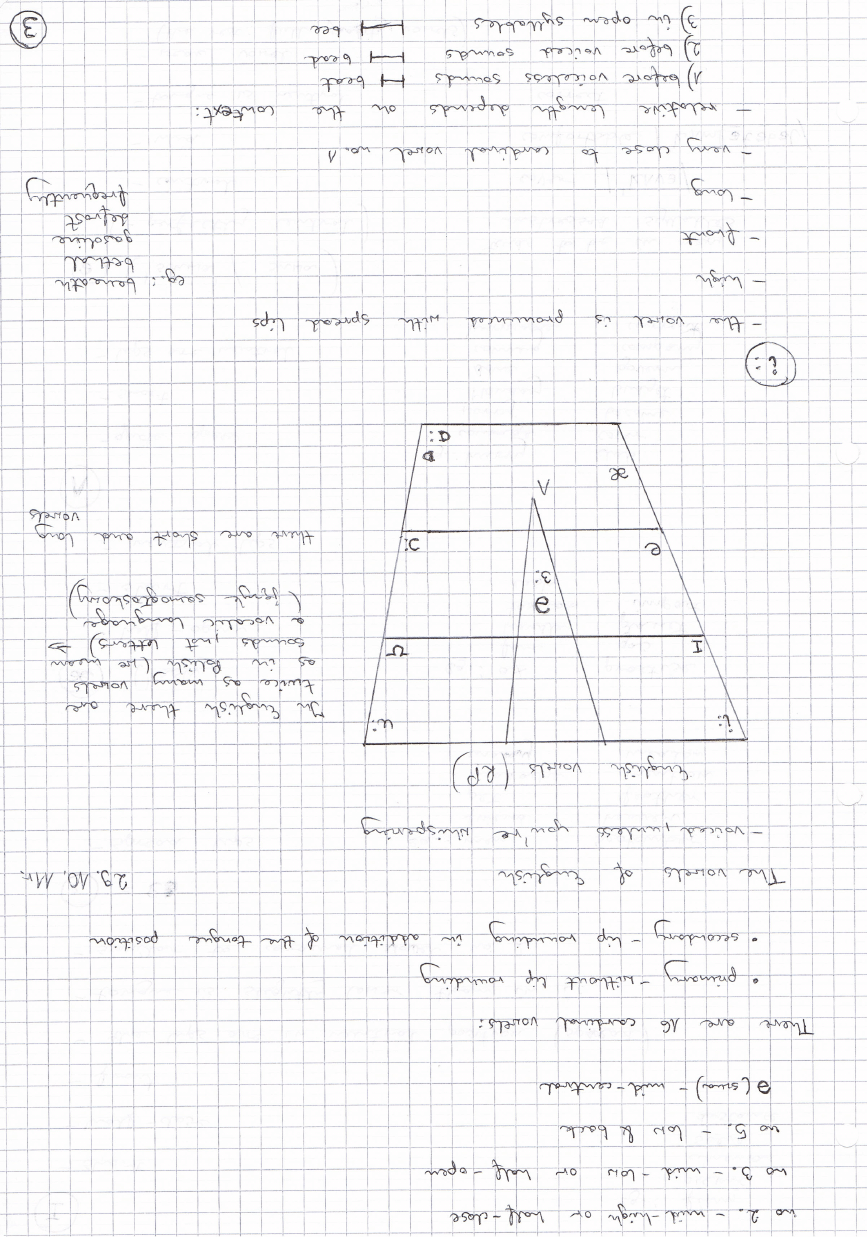 no 2. - mid-high or half-close
no 3. - mid-low or half-open
no 5. - low & back
ə (szwa) - mid-central
There are 16 cardinal vowels:
• primary - without lip rounding
• secondary - lip rounding in addition of the tongue position
The vowels of English 29.10.11r.
- voiced, unless you're whispering
English vowels (RP)
i: u:
I ʊ
ə
ɜ:
e ɔ:
ʌ
æ ɒ
ɑ:
In English there are
twice as many vowels
as in Polish (we mean
sounds, not letters) →
a vocalic language
(język samogłoskowy)
there are short and long
vowels
i:
- the vowel is pronounced with spread lips
- high
- front
- long
eg.: beneath
bethal
gasoline
defrost
frequently
- very close to cardinal vowel no. 1
- relative length depends on the context:
1) before voiceless sounds beat
2) before voiced sounds bead
3) in open syllables bee
3